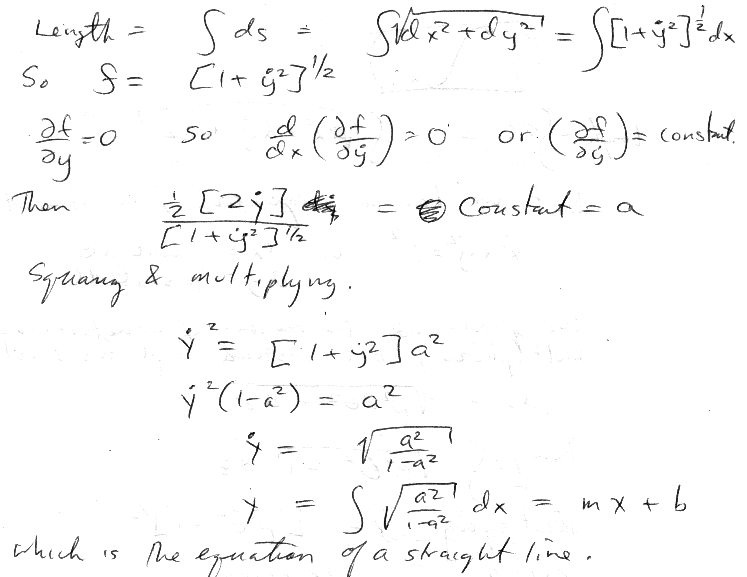 Length = ∫ ds = ∫√dx² + dy² = ∫[1+ẏ²]^½ dx
So f = [1+ ẏ²]^1/2
∂f/∂y = 0 so d/dx (∂f/∂ẏ) = 0 or (∂f/∂ẏ) = constant.
Then ½ [2ẏ] / [1+ẏ²]^1/2 = Constant = a
Squaring & multiplying.
ẏ² = [1+ẏ²] a²
ẏ²(1-a²) = a²
ẏ = √(a²/1-a²)
y = ∫ √(a²/1-a²) dx = mx + b
which is the equation of a straight line.